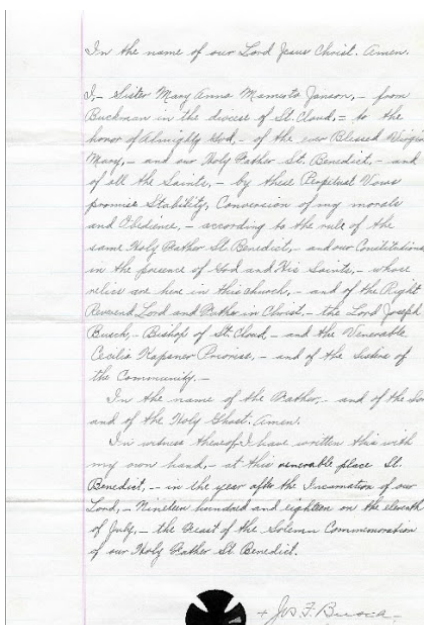 In the name of our Lord Jesus Christ. Amen.
I,- Sister Mary Anna Mamerta Janson,- from
Buckman in the diocese of St. Cloud,= to the
honor of Almighty God,- of the ever Blessed Virgin
Mary,- and our Holy Father St. Benedict,- and
of all the Saints,- by these Perpetual Vows
promise Stability, Conversion of my morals
and Obedience,- according to the rule of the
same Holy Father St. Benedict,- and our Constitutions
in the presence of God and His Saints,- whose
relics are here in this church,- and of the Right
Reverend Lord and Father in Christ.- the Lord Joseph
Busch,- Bishop of St. Cloud - and the Venerable
Cecilia Kapsner Prioress,- and of the Sisters of
the Community.-
In the name of the Father,- and of the Son
and of the Holy Ghost. Amen.
In witness thereof I have written this with
my own hand,- at this venerable place St.
Benedict,-- in the year after the Incarnation of our
Lord,- Nineteen hundred and eighteen on the eleventh
of July,- the Feast of the Solemn Commemoration
of our Holy Father St. Benedict.
+ Jos. F. Busch -